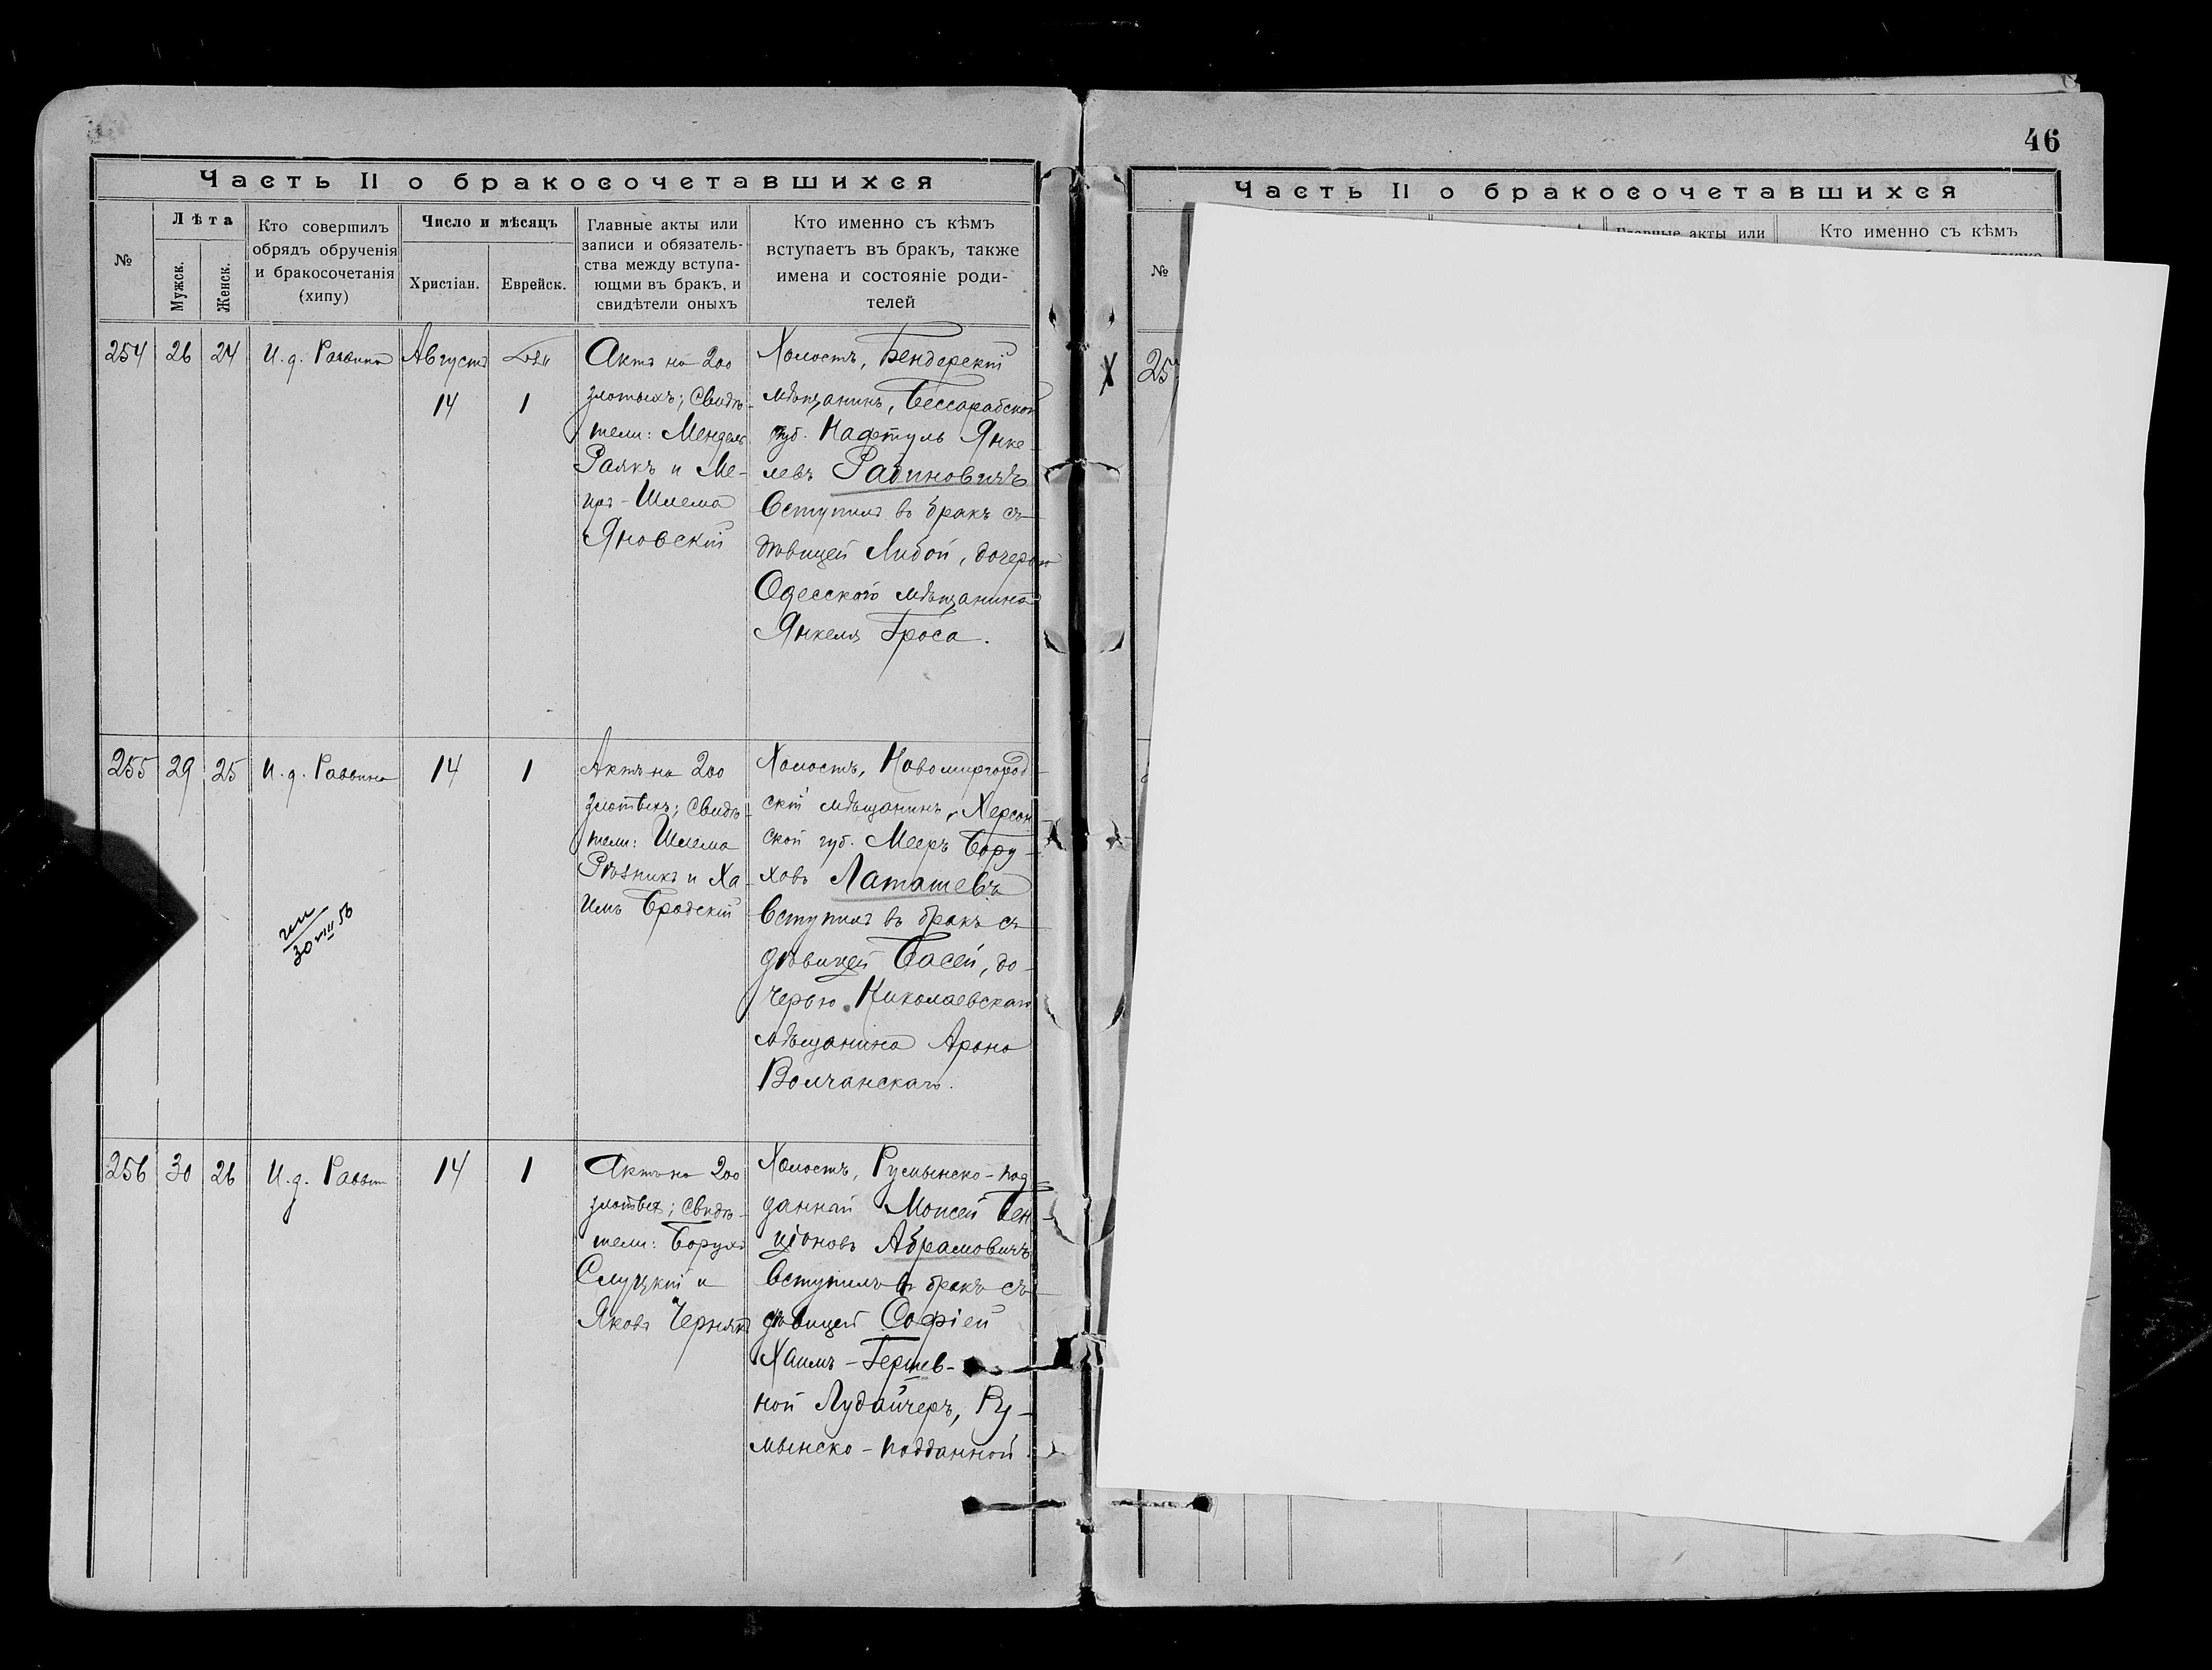 46
Часть II о бракосочетавшихся
№
Лѣта
Мужск.
Женск.
Кто совершилъ
обрядъ обрученія
и бракосочетанія
(хипу)
Число и мѣсяцъ
Христіан.
Еврейск.
Главные акты или
записи и обязатель-
ства между вступа-
ющми въ бракъ, и
свидѣтели оныхъ
Кто именно съ кѣмъ
вступаетъ въ бракъ, также
имена и состояніе роди-
телей
254
26
24
И. д. Раввина
Августа
14
1
Актъ на 200
злотыхъ; Свидѣ-
тели: Мендель
Раякъ и Ме-
иръ-Шлема
Яновскій
Холостъ, Бендерскій
мѣщанинъ, Бессарабской
губ. Нафтуль Янке
левъ Рабиновичъ
Вступилъ въ бракъ съ
дѣвицей Лидой, дочерью
Одесскаго мѣщанина
Янкеля Гроса.
255
29
25
И. д. Раввина
14
1
Актъ на 200
злотыхъ; Свидѣ-
тели: Шлема
Рѣзникъ и Ха-
имъ Бродскій
Холостъ, Новомиргород-
скій мѣщанинъ, Херсон
ской губ. Мееръ Бору-
ховъ Латашевъ
Вступилъ въ бракъ съ
дѣвицей Басей, до-
черью Николаевскаго
мѣщанина Арона
Волчанскаго.
30 VIII 56
256
30
26
И. д. Раввин
14
1
Актъ на 200
злотых; Свидѣ-
тели: Борухъ
Слуцкій и
Яковъ Чернякъ
Холостъ, Румынско-под
данный Моисей Бен-
ціоновъ Абрамовичъ
Вступилъ въ бракъ съ
дѣвицей Софіей
Хаимъ-Гершев-
ной Лудайчеръ, Ру-
мынско-подданной.
Часть II о бракосочетавшихся
№
Главные акты или
Кто именно съ кѣмъ
25